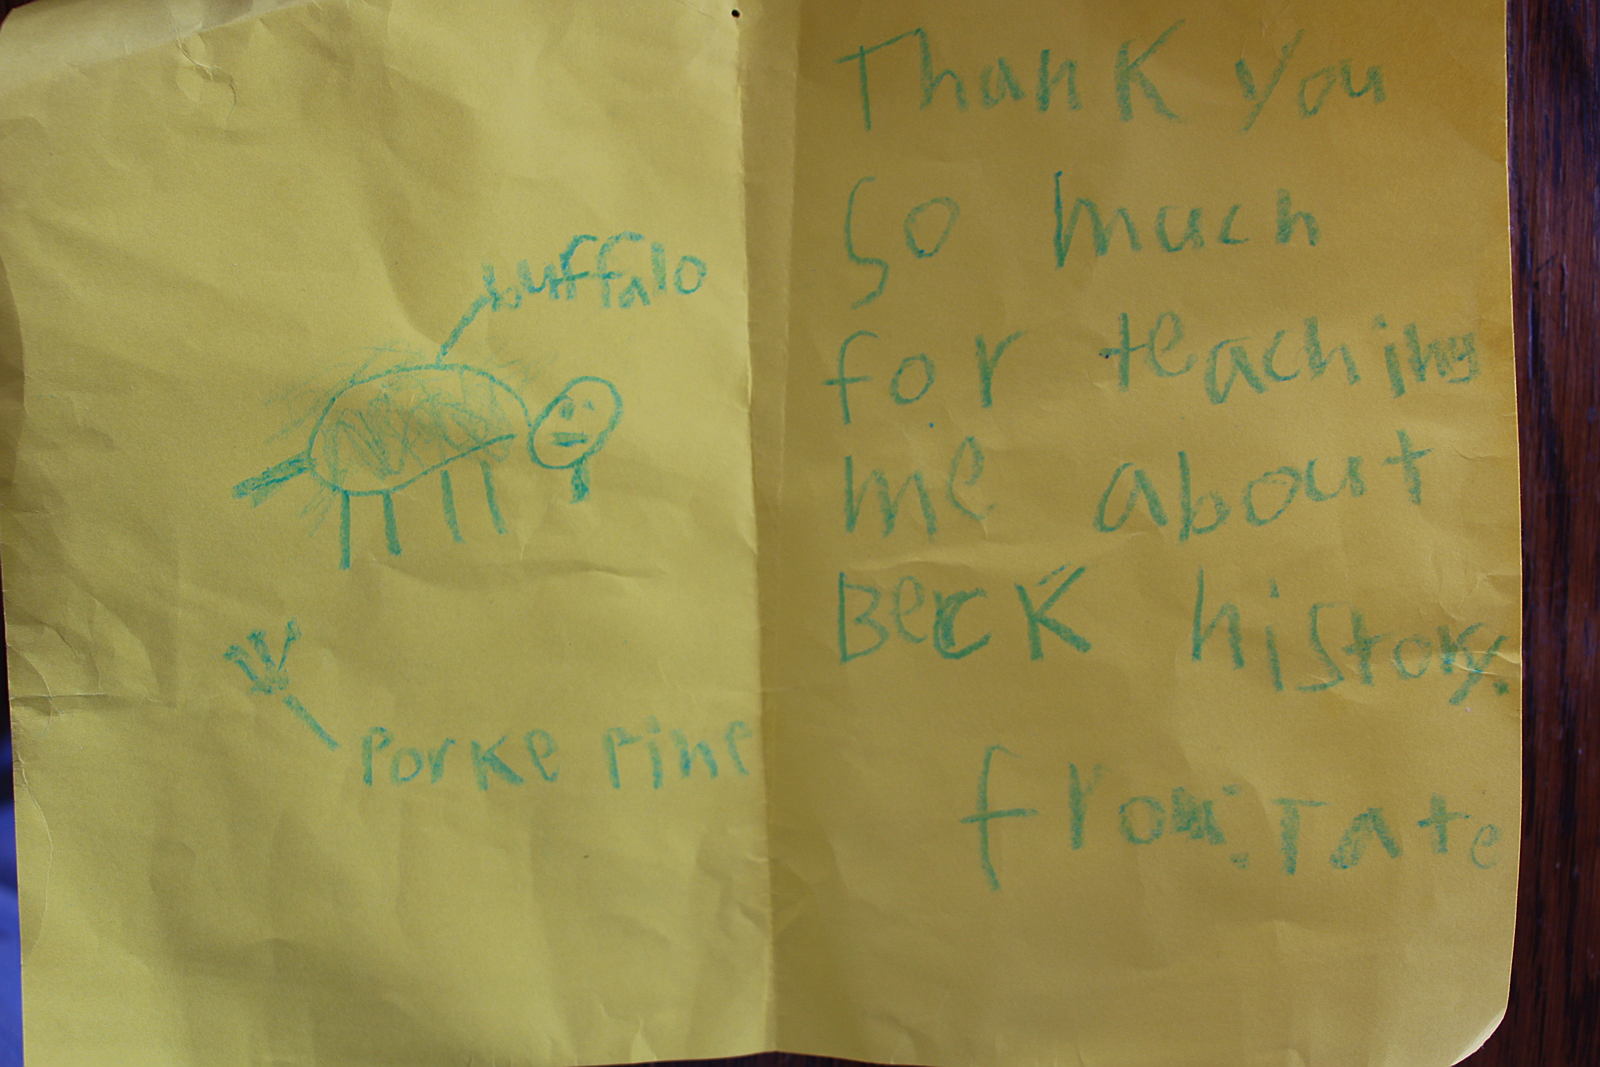 buffalo
Porke Pine
Thank you
So much
for teaching
me about
Berck history.
from: Tate